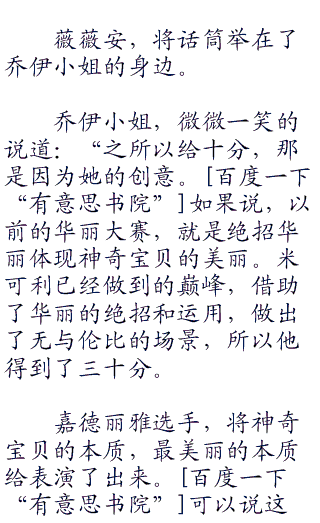 薇薇安，将话筒举在了
乔伊小姐的身边。
乔伊小姐，微微一笑的
说道：“之所以给十分，那
是因为她的创意。[百度一下
“有意思书院”]如果说，以
前的华丽大赛，就是绝招华
丽体现神奇宝贝的美丽。米
可利已经做到的巅峰，借助
了华丽的绝招和运用，做出
了无与伦比的场景，所以他
得到了三十分。
嘉德丽雅选手，将神奇
宝贝的本质，最美丽的本质
给表演了出来。[百度一下
“有意思书院”]可以说这